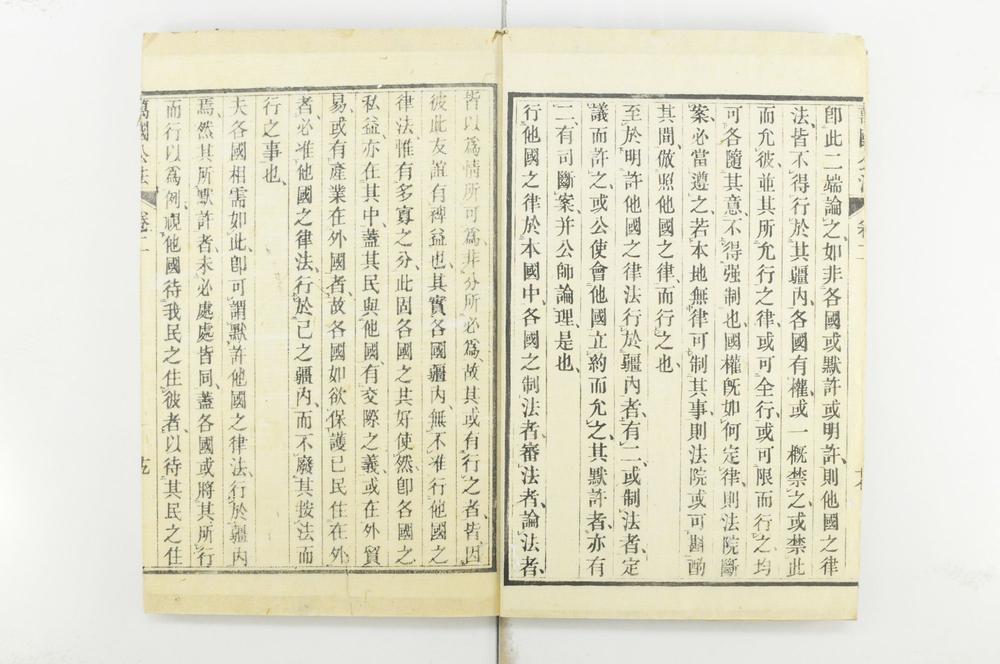 即此二端論之、如非各國或默許或明許、則他國之律
法、皆不得行於其疆內、各國有權、或一概禁之、或禁此
而允彼、並其所允行之律、或可全行、或可限而行之、均
可各隨其意、不得强制也、國權旣如何定律、則法院斷
案必當遵之、若本地無律可制其事、則法院或可斟酌
其間、倣照他國之律、而行之也、
至於明許他國之律法行於疆內者、有二、或制法者、定
議而許之、或公使會他國立約而允之、其默許者、亦有
二、有司斷案、并公師論理、是也、
行他國之律於本國中、各國之制法者、審法者、論法者、
皆以爲情所可爲、非分所必爲、故其或有行之者、皆因
彼此友誼有裨益也、其實各國疆內、無不准行他國之
律法、惟有多寡之分、此固各國之其好使然、卽各國之
私益、亦在其中、蓋其民與他國、有交際之義、或在外貿
易、或有產業在外國者、故各國如欲保護己民住在外
者、必准他國之律法、行於己之疆內、而不廢其按法而
行之事也、
夫各國相需如此、卽可謂默許他國之律法、行於疆內
焉、然其所默許者、未必處處皆同、蓋各國或將其所行
而行以爲例、視他國待我民之住彼者、以待其民之住
萬國公法 卷二